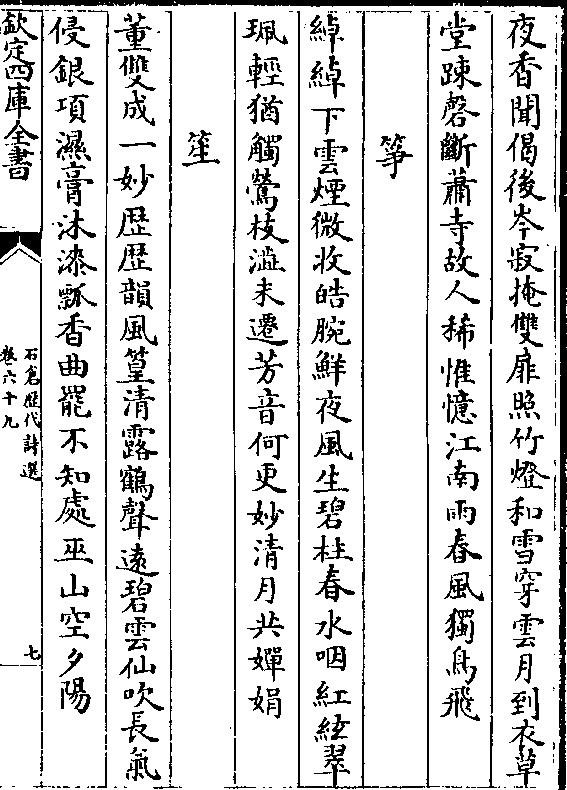 夜香聞偈後岑寂掩雙扉照竹燈和雪穿雲月到衣草
堂踈磬斷蕭寺故人稀惟憶江南雨春風獨鳥飛
箏
綽綽下雲煙微收皓腕鮮夜風生碧柱春水咽紅絃翠
珮輕猶觸鶯枝澁未遷芳音何更妙清月共嬋娟
笙
董雙成一妙歴歴韻風篁清露鶴聲遠碧雲仙吹長氣
侵銀項濕膏沐漆瓢香曲罷不知處巫山空夕陽
欽定四庫全書
石倉歴代詩選
卷六十九
七